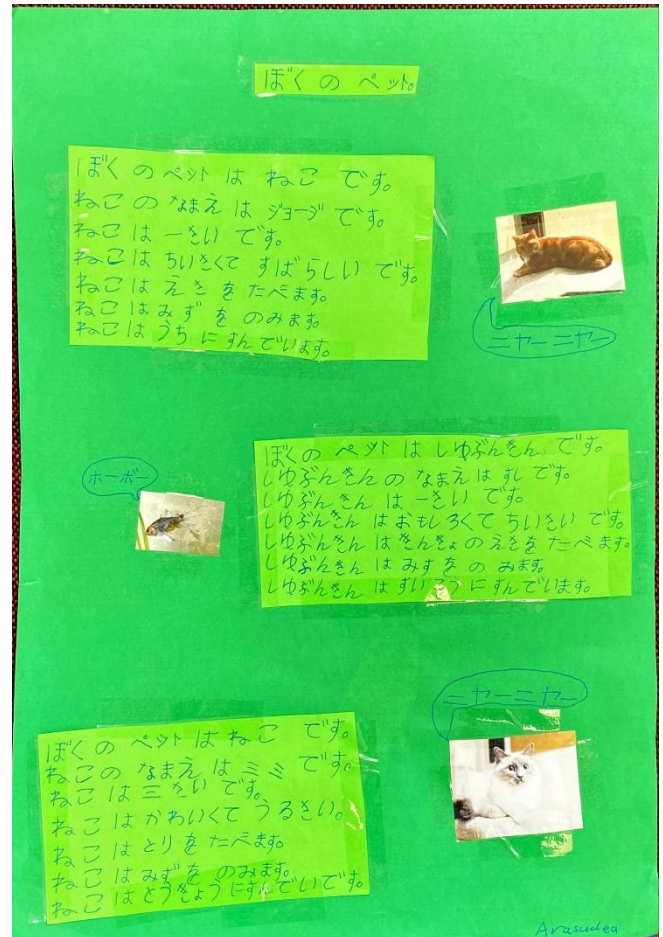 ぼくの ペット。
ぼくの ペット は ねこ です。
ねこの なまえ は ジョージ です。
ねこ は 一さい です。
ねこ は ちいさくて すばらしい です。
ねこは えさ を たべます。
ねこは みず を のみます。
ねこは うち に すんでいます。
ニヤーニヤー
ぼくの ペット は しゆぶんきん です。
しゆぶんきん の なまえ は すし です。
しゆぶんきん は 一さい です。
しゆぶんきん は おもしろくて ちいさい です。
しゆぶんきん は きんきょの えさを たべます。
しゆぶんきん は みずを の みます。
しゆぶんきん は すいそう に すんでいます。
ホーボー
ニヤーニヤー
ぼくの ペット は ねこ です。
ねこの なまえ は ミミ です。
ねこ は 三 さい です。
ねこ は かわいくて うるさい。
ねこ は とり を たべます。
ねこ は みずを のみます。
ねこ は とうきょう に すんでいです。